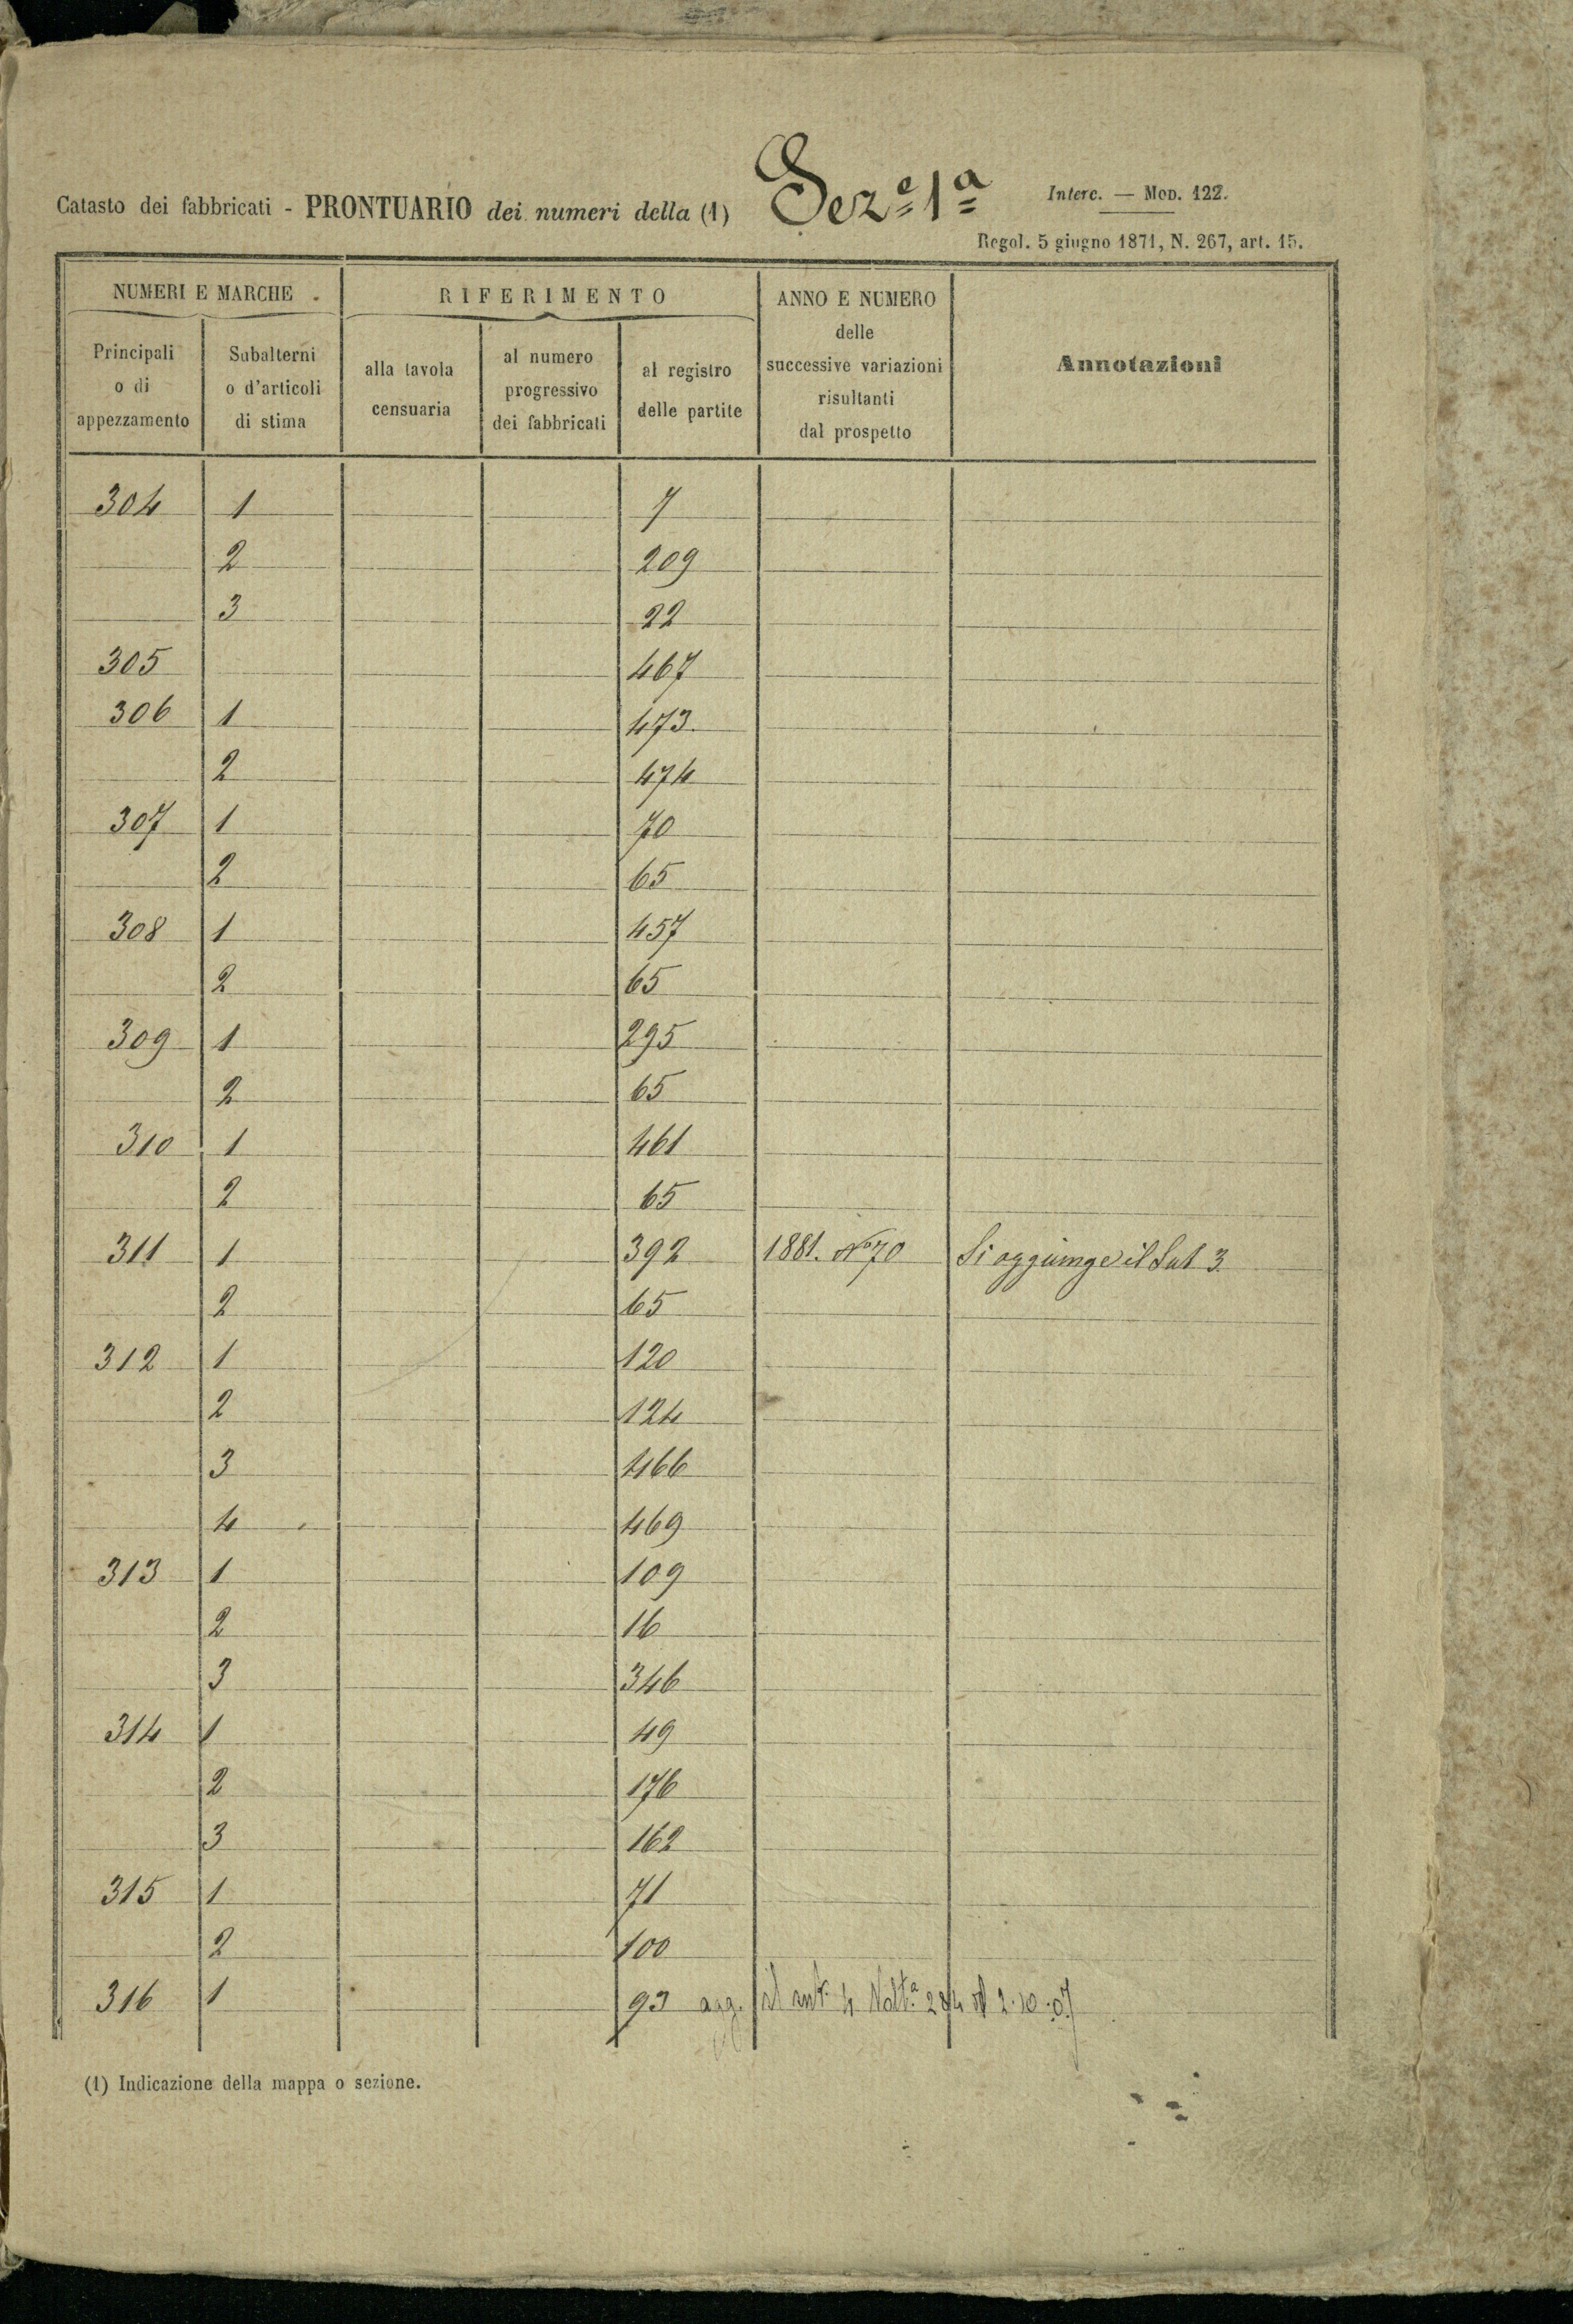 Catasto dei fabbricati - PRONTUARIO dei numeri della (1) Sez.e 1a
Interc. — Mod. 122.
Regol. 5 giugno 1871, N. 267, art. 15.
NUMERI E MARCHE
RIFERIMENTO
ANNO E NUMERO delle successive variazioni risultanti dal prospetto
Annotazioni
Principali o di appezzamento
Subalterni o d'articoli di stima
alla tavola censuaria
al numero progressivo dei fabbricati
al registro delle partite
304 1 7
2 209
3 22
305 467
306 1 473
2 474
307 1 70
2 65
308 1 457
2 65
309 1 295
2 65
310 1 461
2 65
311 1 392 1881. No 70 Si aggiunge il Sub 3
2 65
312 1 120
2 124
3 466
4 469
313 1 109
2 16
3 346
314 1 49
2 176
3 162
315 1 71
2 100
316 1 93 agg. il 4 2.10.07
(1) Indicazione della mappa o sezione.